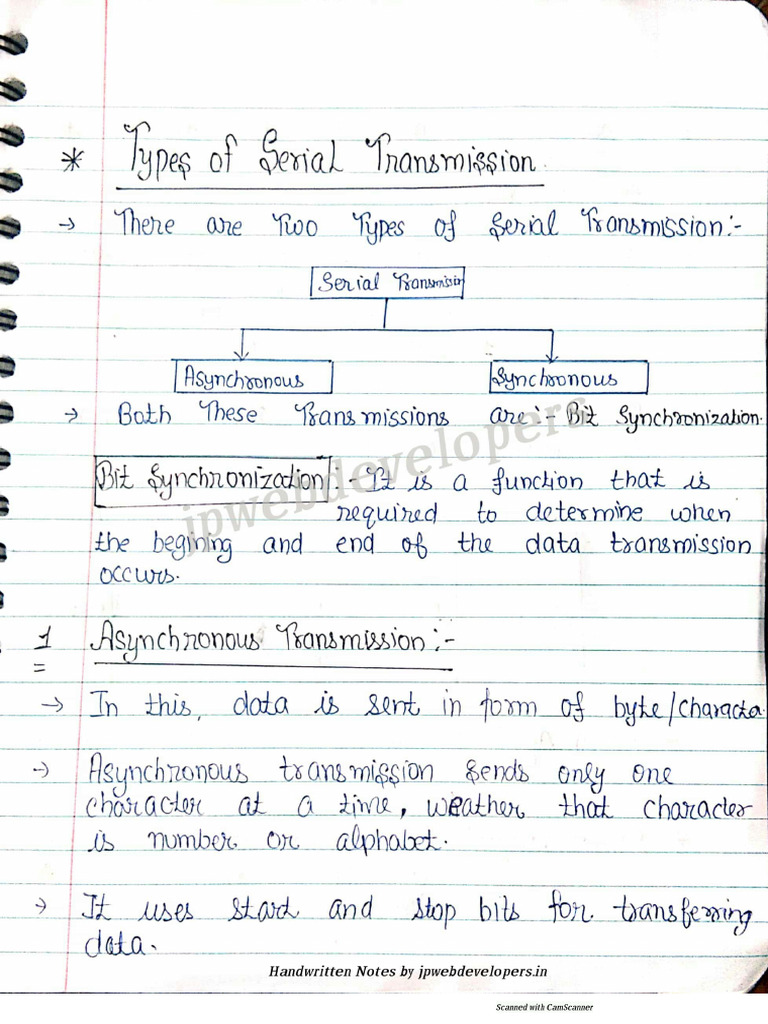 * Types of Serial Transmission.
→ There are Two Types of Serial Transmission:-
Serial Transmissin
Asynchronous Synchronous
→ Both These Transmissions are:- Bit Synchronization.
jpwebdevelopers
Bit Synchronization:- It is a function that is
required to determine when
the begining and end of the data transmission
occurs.
1 Asynchronous Transmission:-
=
→ In this, data is sent in form of byte/characta.
→ Asynchronous transmission sends only one
character at a time, weather that character
is number or alphabet.
→ It uses start and stop bits for transferring
data.
Handwritten Notes by jpwebdevelopers.in
Scanned with CamScanner